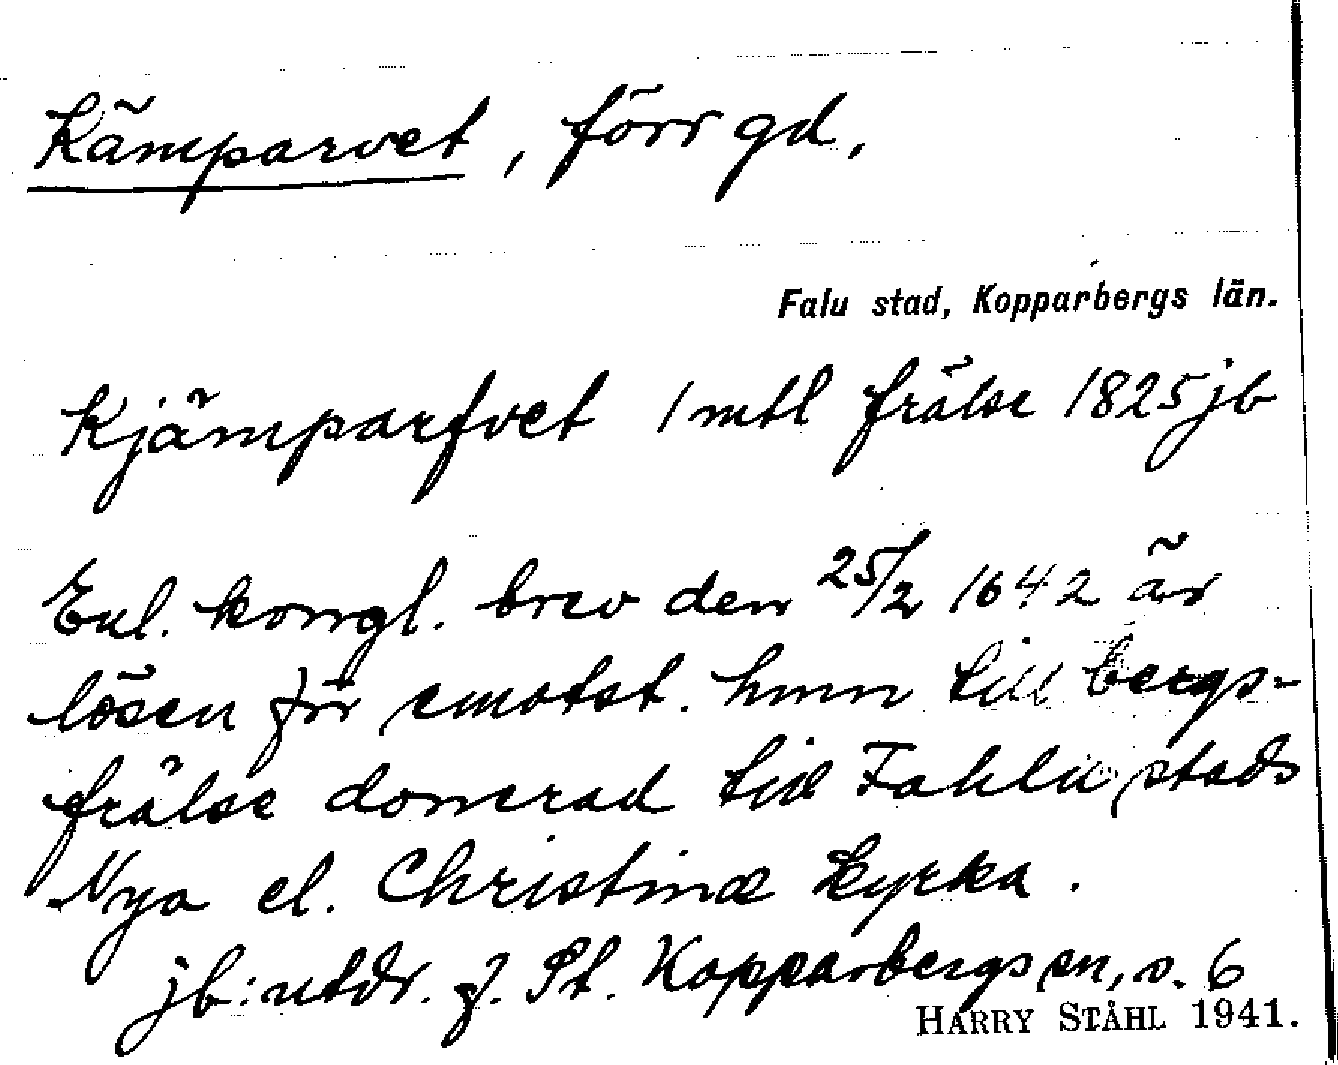 Kämparvet, förr gd,
Falu stad, Kopparbergs län.
Kjämparfvet 1 mtl frälse 1825 jb
Enl. kongl. brev den 25/2 1642 är
lösen för emotst. hmn till bergs-
frälse donerad till Fahlu stads
Nya el. Christinæ kyrka.
jb: utdr. f. St. Kopparbergs sn, s. 6
HARRY STÅHL 1941.